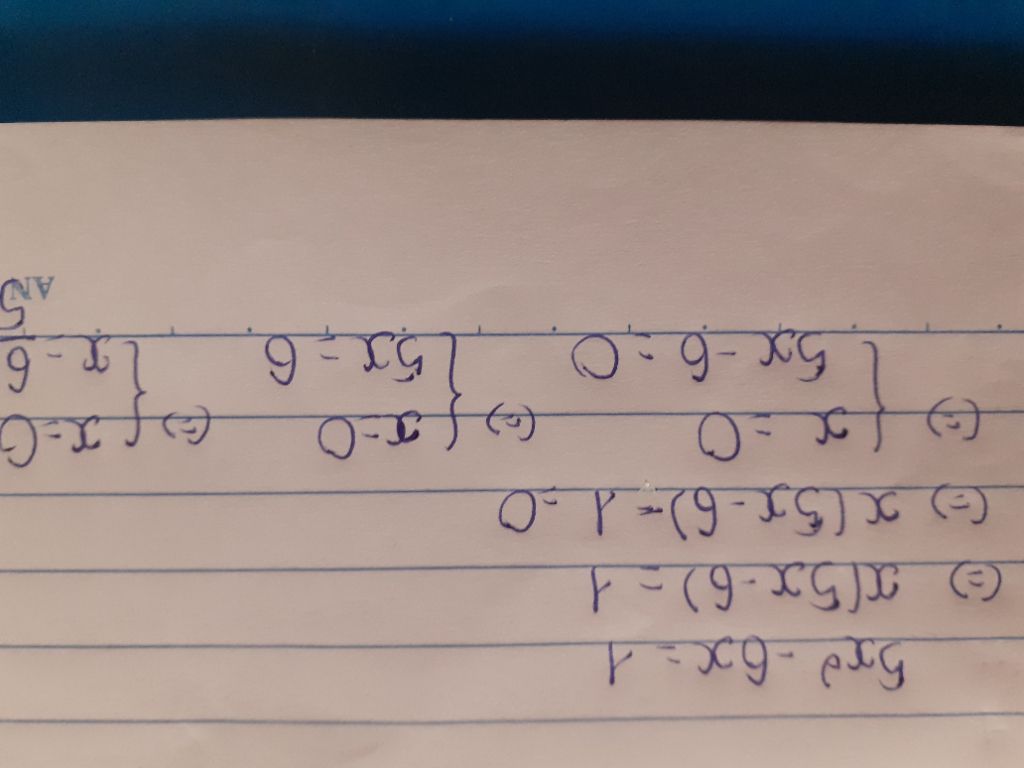 5x² - 6x = 1
(=) x(5x - 6) = 1
(=) x(5x - 6) - 1 = 0
(=) { x = 0 (=) { x = 0 (=) { x = 0
5x - 6 = 0 5x = 6 x = 6
5
AN